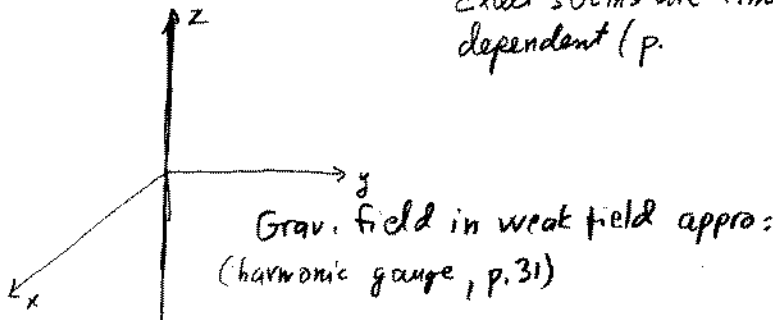 z
dependent (p.
y
Grav. field in weak field appro:
(harmonic gauge, p. 31)
x